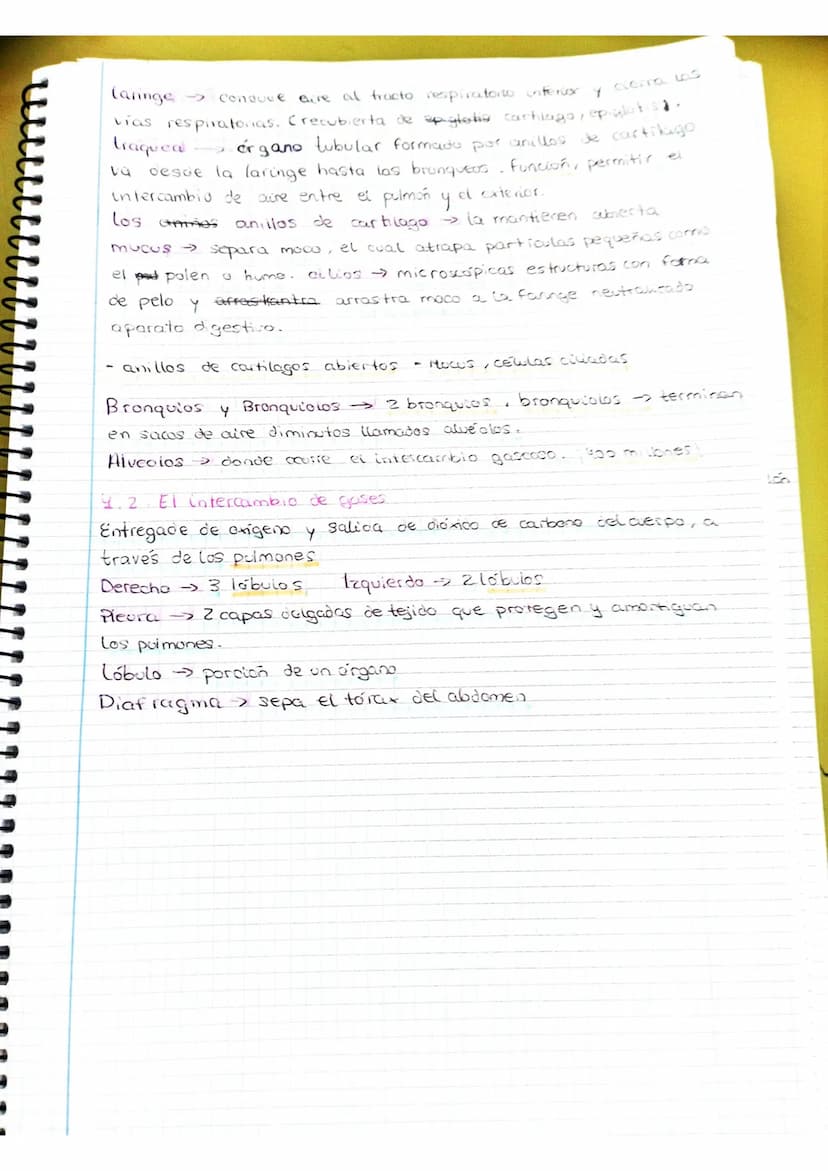 laringe → conduce aire al tracto respiratorio inferior y cierra las
vías respiratorias. (recubierta de epiglotis cartilago, epiglotis).
traquea → órgano tubular formado por anillos de cartilago
va desde la laringe hasta los bronqueos. función, permitir el
intercambio de aire entre el pulmón y el exterior.
Los anillos de cartilago → la mantienen abierta
mucus → separa moco, el cual atrapa partículas pequeñas como
el polen o humo. cilios → microscópicas estructuras con forma
de pelo y arrastra moco a la faringe neutralizado
aparato digestivo.
- anillos de cartilagos abiertos - Mocus, células ciliadas
Bronquios y Bronquiolos → 2 bronquios. bronquiolos → terminan
en sacos de aire diminutos llamados alvéolos.
Alveolos → donde ocurre el intercambio gaseoso. 400 millones
ión
4.2. El intercambio de gases
Entregade de oxígeno y salida de dióxico de carbono del cuerpo, a
través de los pulmones
Derecho → 3 lóbulos, Izquierdo → 2 lóbulos
Pleura → 2 capas delgadas de tejido que protegen y amortiguan
los pulmones.
Lóbulo → porción de un órgano
Diafragma → sepa el tórax del abdomen